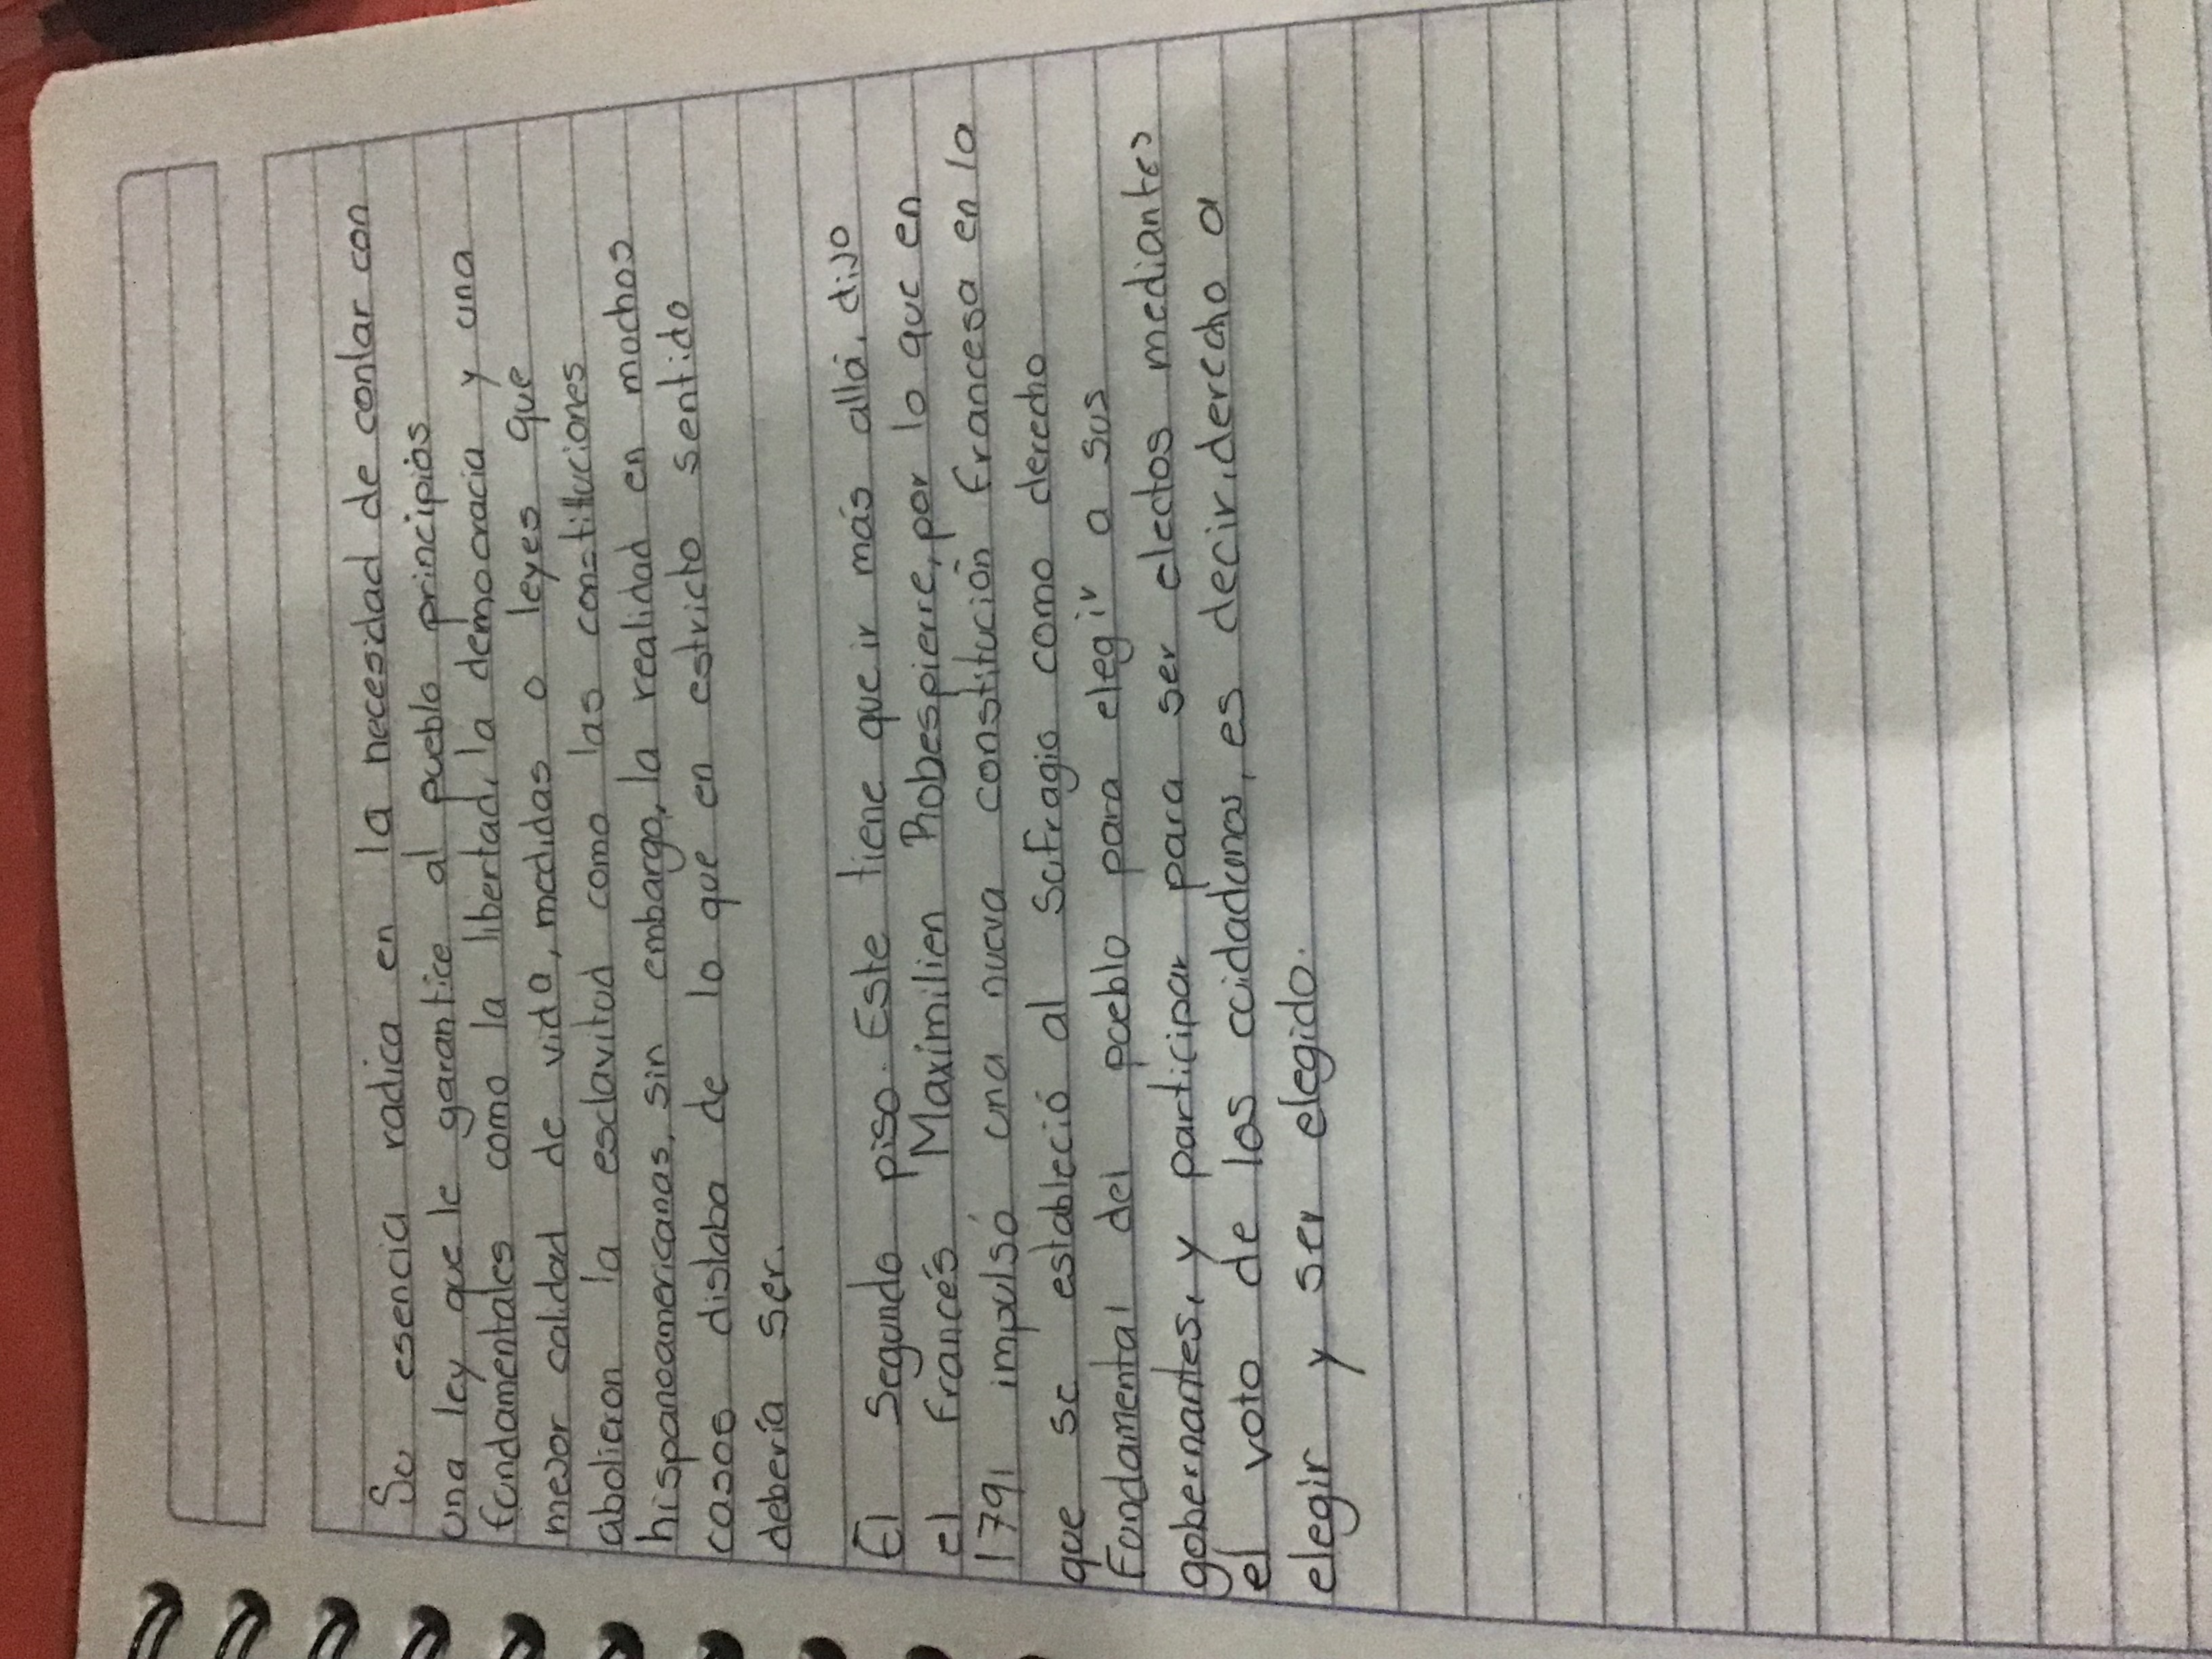 Su esencia radica en la necesidad de contar con
una ley que le garantice al pueblo principios
fundamentales como la libertad, la democracia y una
mejor calidad de vida, medidas o leyes que
abolieron la esclavitud como las constituciones
hispanoamericanas, sin embargo, la realidad en muchos
casos distaba de lo que en estricto sentido
debería ser.
El segundo piso. Este tiene que ir más allá, dijo
el francés Maximilien Robespierre, por lo que en
1791 impulsó una nueva constitución francesa en la
que se estableció al sufragio como derecho
fundamental del pueblo para elegir a sus
gobernantes, y participar para ser electos mediantes
el voto de los ciudadanos, es decir, derecho a
elegir y ser elegido.